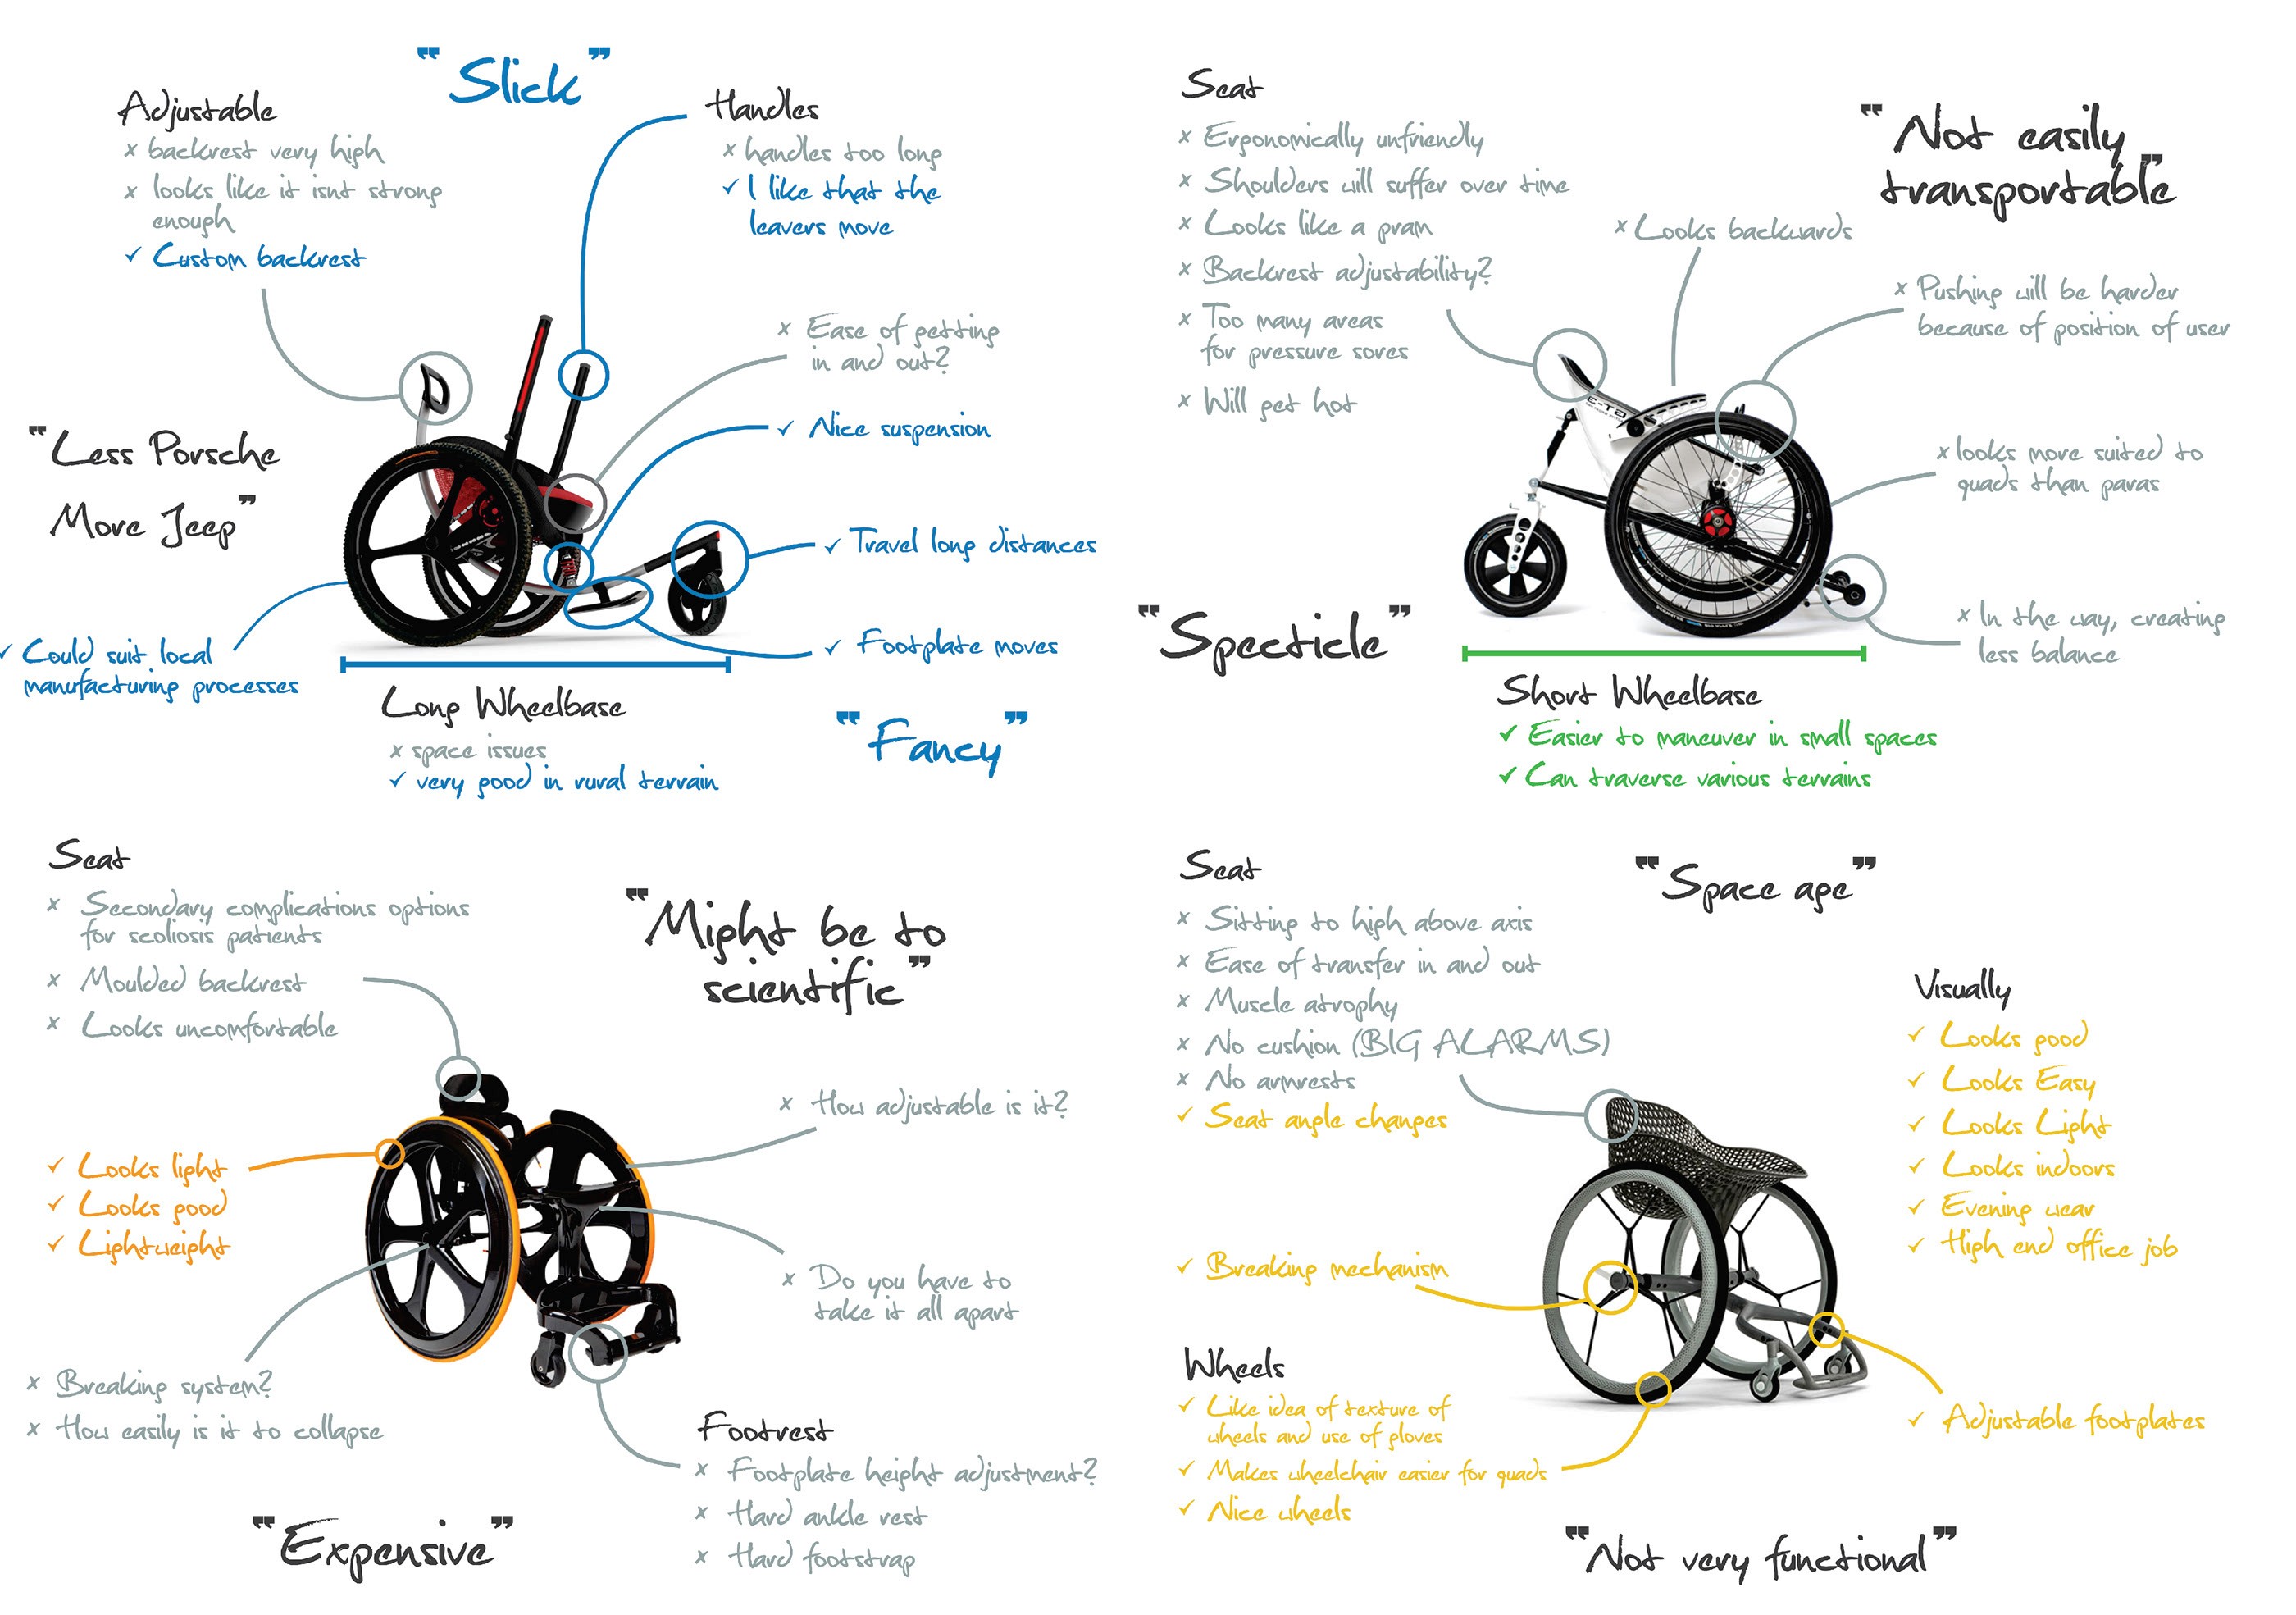 "Slick"
Adjustable
x backrest very high
x looks like it isnt strong
enough
✓ Custom backrest
Handles
x handles too long
✓ I like that the
leavers move
x Ease of getting
in and out?
✓ Nice suspension
"Less Porsche
More Jeep"
✓ Travel long distances
✓ Could suit local
manufacturing processes
✓ Footplate moves
Long Wheelbase
x space issues
✓ very good in rural terrain
"Fancy"
Seat
x Ergonomically unfriendly
x Shoulders will suffer over time
x Looks like a pram
x Backrest adjustability?
x Too many areas
for pressure sores
x Will get hot
"Not easily
transportable"
x Looks backwards
x Pushing will be harder
because of position of user
x looks more suited to
quads than paras
"Specticle"
x In the way, creating
less balance
Short Wheelbase
✓ Easier to maneuver in small spaces
✓ Can traverse various terrains
Seat
x Secondary complications options
for scoliosis patients
x Moulded backrest
x Looks uncomfortable
"Might be to
scientific"
x How adjustable is it?
✓ Looks light
✓ Looks good
✓ Lightweight
x Do you have to
take it all apart
x Breaking system?
x How easily is it to collapse
Footrest
x Footplate height adjustment?
x Hard ankle rest
x Hard footstrap
"Expensive"
Seat
x Sitting to high above axis
x Ease of transfer in and out
x Muscle atrophy
x No cushion (BIG ALARMS)
x No armrests
✓ Seat angle changes
"Space age"
Visually
✓ Looks good
✓ Looks Easy
✓ Looks Light
✓ Looks indoors
✓ Evening wear
✓ High end office job
✓ Breaking mechanism
Wheels
✓ Like idea of texture of
wheels and use of gloves
✓ Makes wheelchair easier for quads
✓ Nice wheels
✓ Adjustable footplates
"Not very functional"